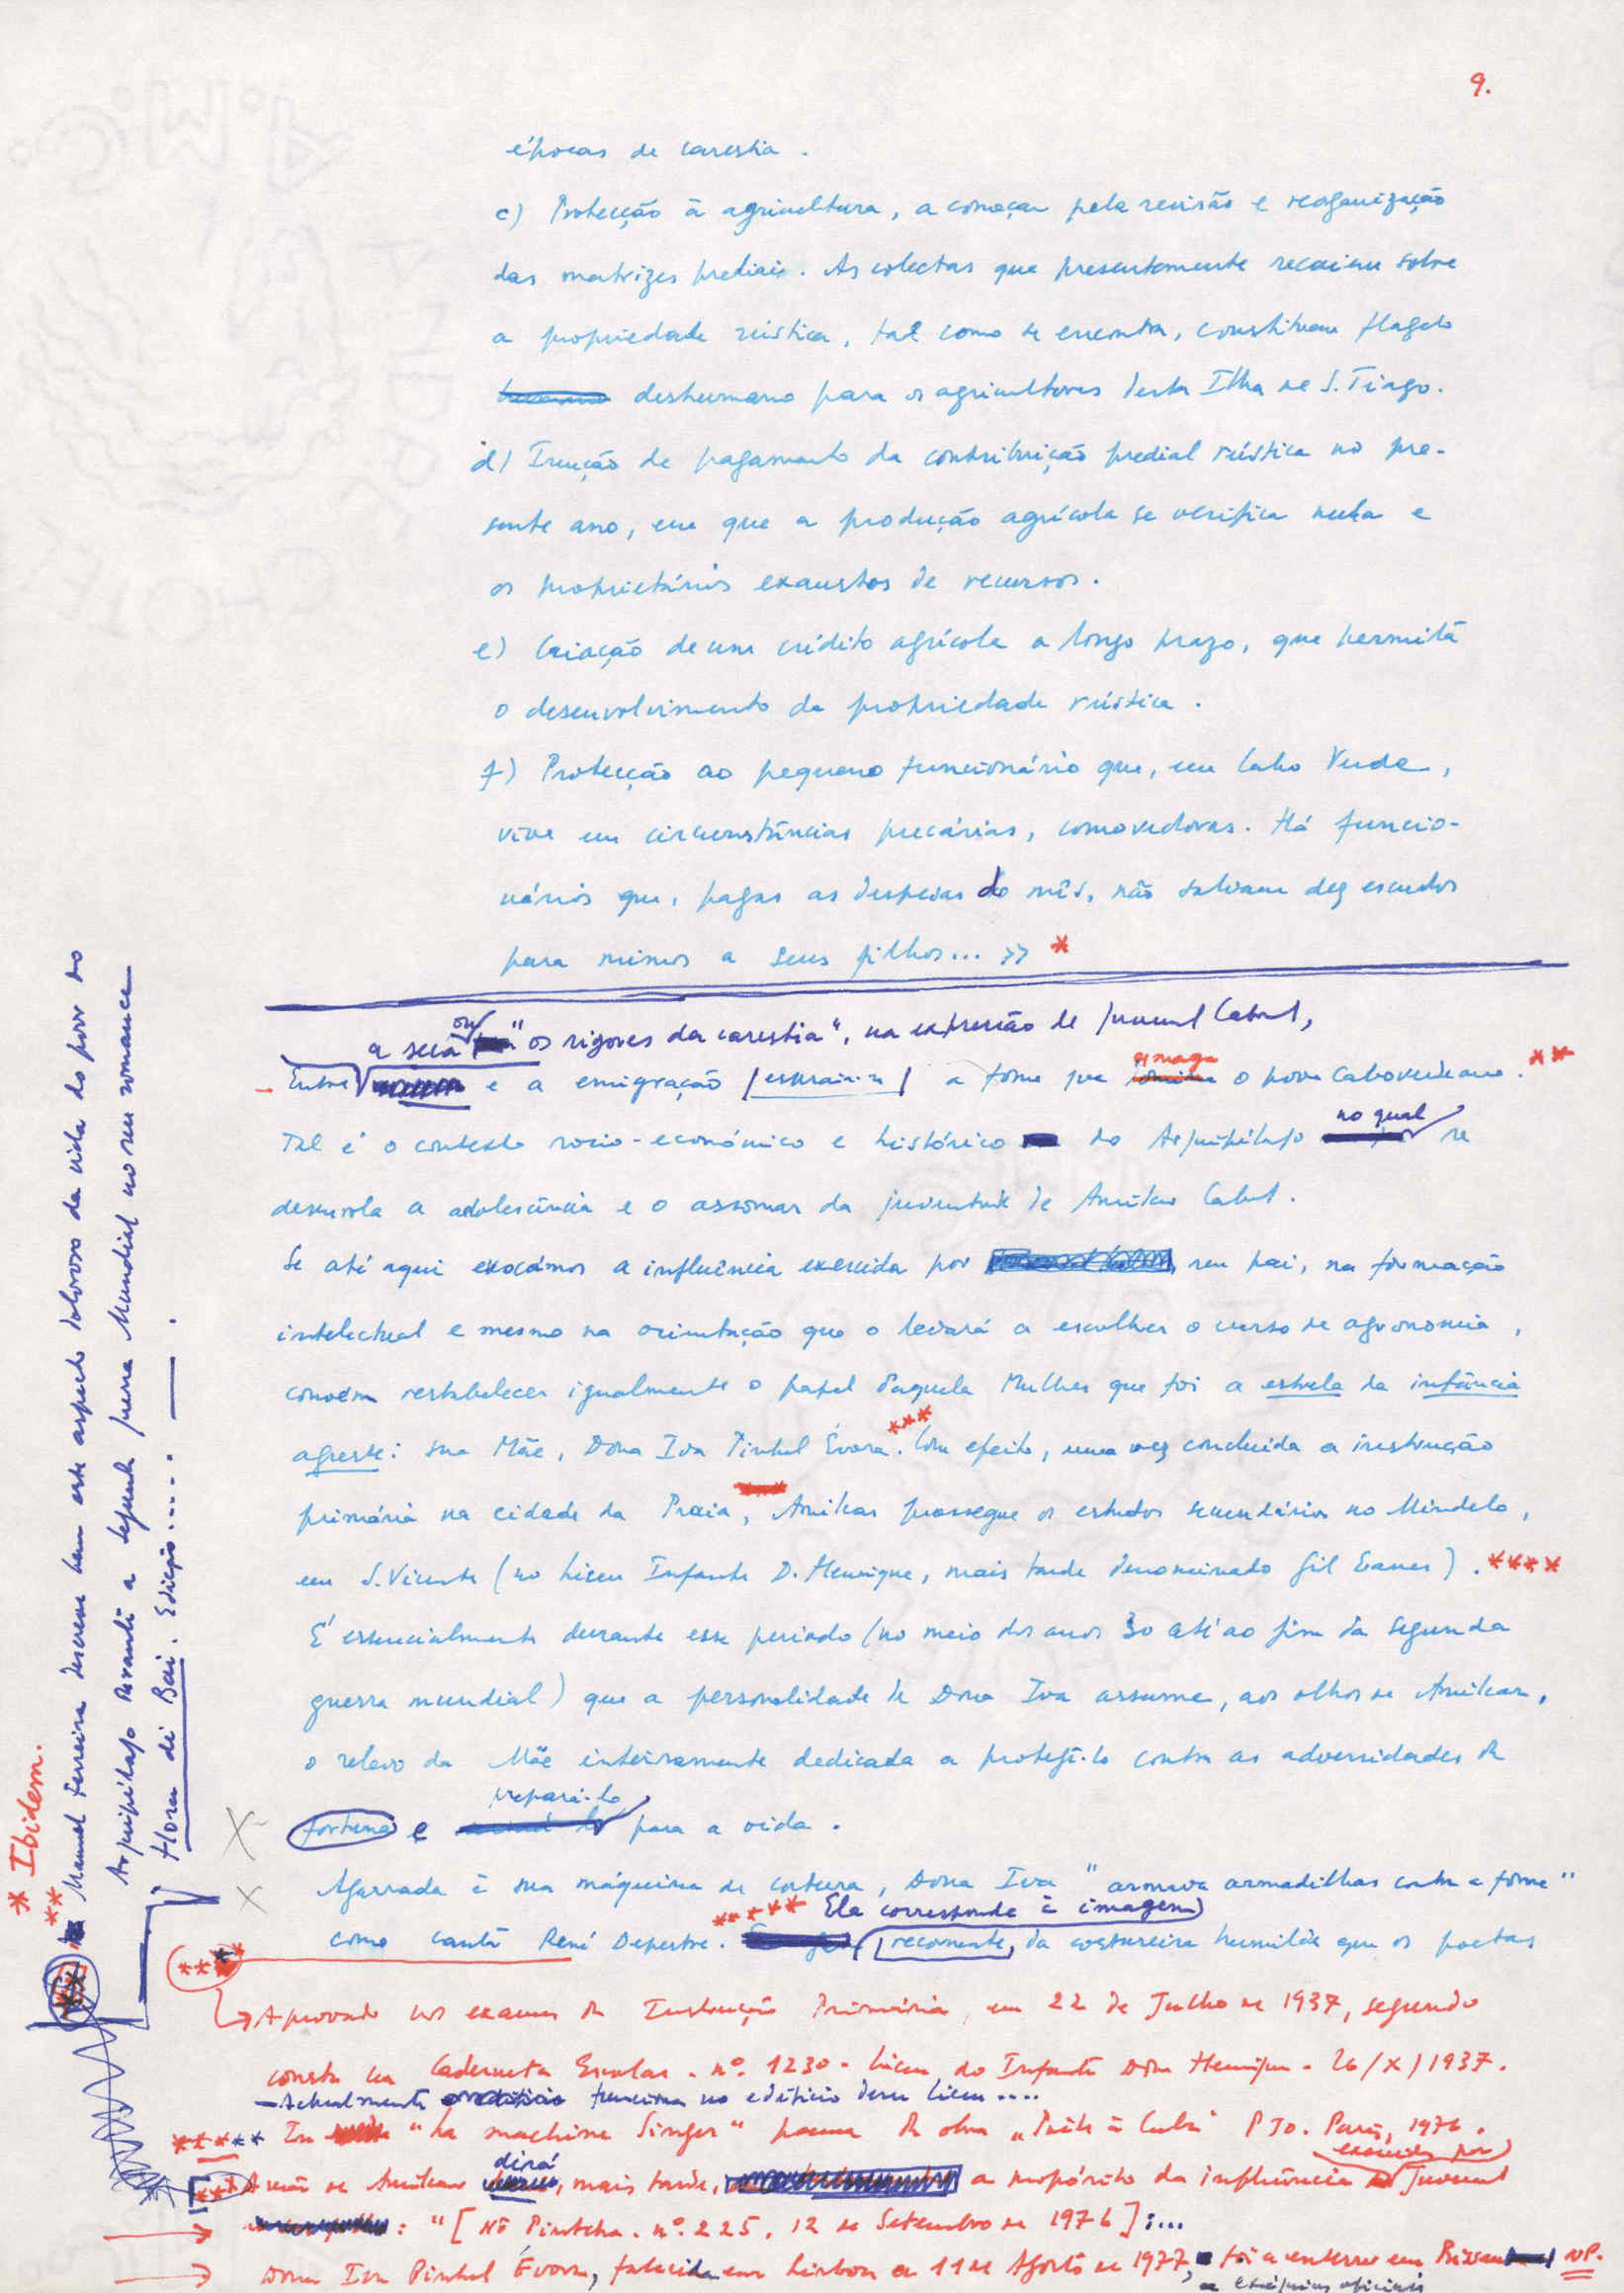 9.
épocas de carestia.
c) Protecção à agricultura, a começar pela revisão e reorganização
das matrizes prediais. As colectas que presentemente recaiem sobre
a propriedade rústica, tal como se encontra, constituem flagelo
deshumano para os agricultores desta Ilha de S. Tiago.
d) Isenção de pagamento da contribuição predial rústica no pre-
sente ano, em que a produção agrícola se verifica nula e
os proprietários exaustos de recursos.
e) Criação de um crédito agrícola a longo prazo, que permita
o desenvolvimento da propriedade rústica.
f) Protecção ao pequeno funcionário que, em Cabo Verde,
vive em circunstâncias precárias, comovedoras. Há funcio-
nários que, pagas as despesas do mês, não salvam dez escudos
para mimos a seus filhos... >> *
a seca ou "os rigores da carestia", na expressão de Juvenal Cabral,
- Entre e a emigração a fome que esmaga o povo caboverdeano. **
Tal é o contexto socio-económico e histórico do Arquipélago no qual se
desenrola a adolescência e o assomar da juventude de Amílcar Cabral.
Se até aqui evocámos a influência exercida por seu pai, na formação
intelectual e mesmo na orientação que o levará a escolher o curso de agronomia,
convém restabelecer igualmente o papel daquela Mulher que foi a estrela da infância
agreste: sua Mãe, Dona Iva Pinhel Évora. *** Com efeito, uma vez concluida a instrução
primária na cidade da Praia, Amílcar prossegue os estudos secundários no Mindelo,
em S. Vicente (no Liceu Infante D. Henrique, mais tarde denominado Gil Eanes). ****
É essencialmente durante esse período (no meio dos anos 30 até ao fim da segunda
guerra mundial) que a personalidade de Dona Iva assume, aos olhos de Amílcar,
o relevo da Mãe inteiramente dedicada a protegê-lo contra as adversidades da
fortuna e prepará-lo para a vida.
Agarrada à sua máquina de costura, Dona Iva "armava armadilhas contra a fome"
como canta René Depestre. ***** Ela corresponde à imagem recorrente, da costureira humilde que os poetas
****
Aprovado nos exames da Instrução Primária, em 22 de Julho de 1937, segundo
consta na Caderneta Escolar. nº. 1230 - Liceu do Infante Dom Henrique - 26/X/1937.
- Actualmente funciona no edifício desse liceu....
***** In "La machine Singer" poema da obra "Poète à Cuba" PJO. Paris, 1976.
*** A mãe de Amílcar dirá, mais tarde, a propósito da influência exercida por Juvenal
: "[Nô Pintcha. nº. 225, 12 de Setembro de 1976]:...
Dona Iva Pinhel Évora, falecida em Lisboa a 11 de Agosto de 1977, foi a enterrar em Bissau NP.
exéquias oficiais
* Ibidem.
** Manuel Ferreira descreve bem este aspecto doloroso da vida do povo do
Arquipélago durante a segunda guerra Mundial no seu romance
Hora di Bai. Edição.....